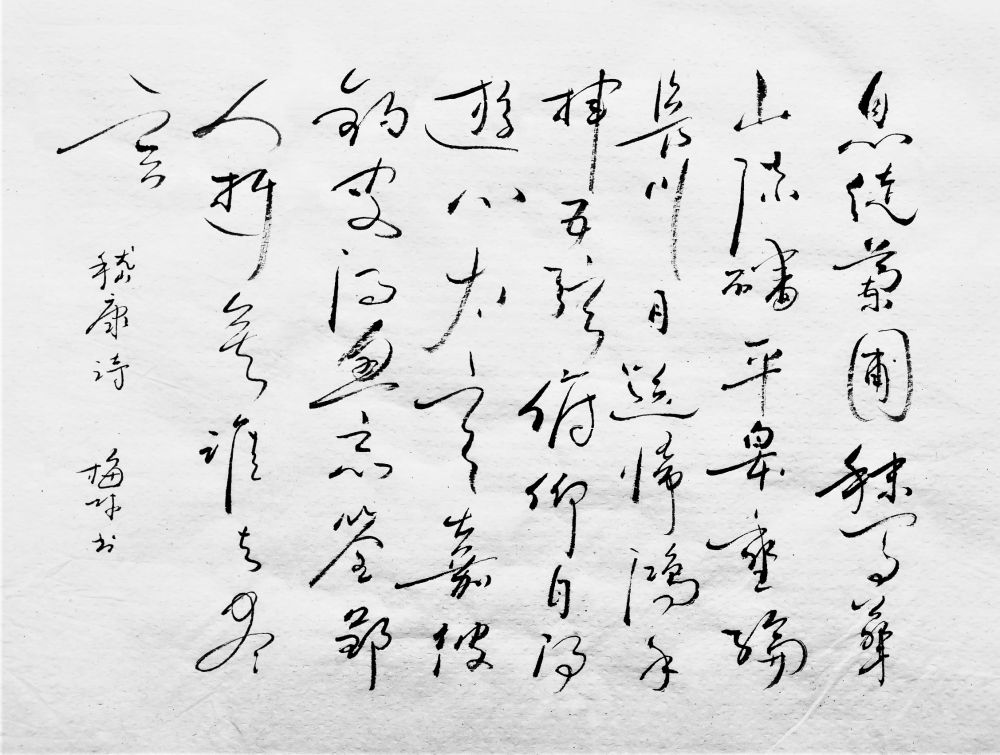 息徒蘭圃秣馬華
山流磻平皋垂綸
長川目送帰鴻手
揮五弦俯仰自得
遊心太玄嘉彼
釣叟得魚忘筌郢
人逝矣誰与尽
言
嵇康诗
梅书